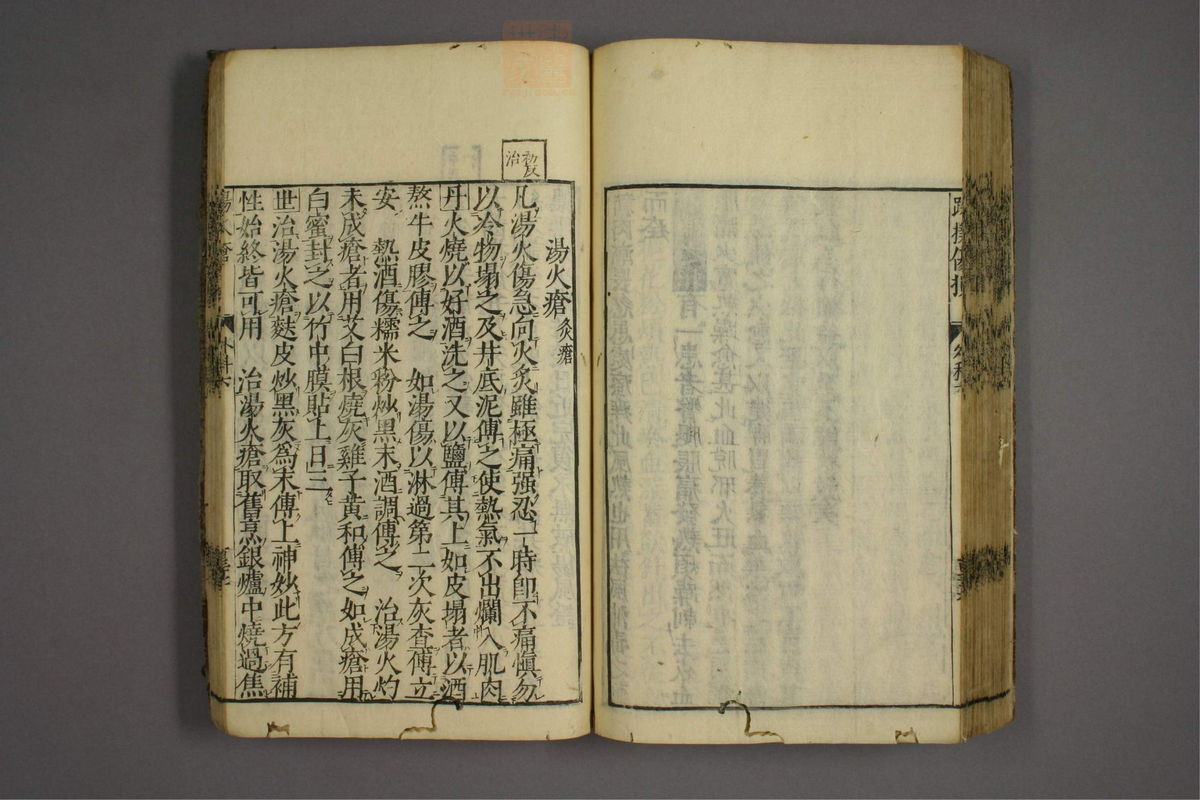 跌撲傷損
湯火瘡 灸瘡
治
凡湯火傷急向火炙雖極痛强忍一時卽不痛愼勿
以冷物塌之及井底泥傅之使熱氣不出爛入肌肉
丹火燒以好酒洗之又以鹽傅其上如皮塌者以酒
熬牛皮膠傅之 如湯傷以淋過第二次灰查傅立
安 熱酒傷糯米粉炒黑末酒調傅之 治湯火灼
未成瘡者用艾白根燒灰雞子黃和傅之如成瘡用
白蜜封之以竹中膜貼上日三
世治湯火瘡麩皮炒黑灰爲末傅上神妙此方有補
性始終皆可用 治湯火瘡取舊烹銀爐中燒過焦
湯火瘡
外科六